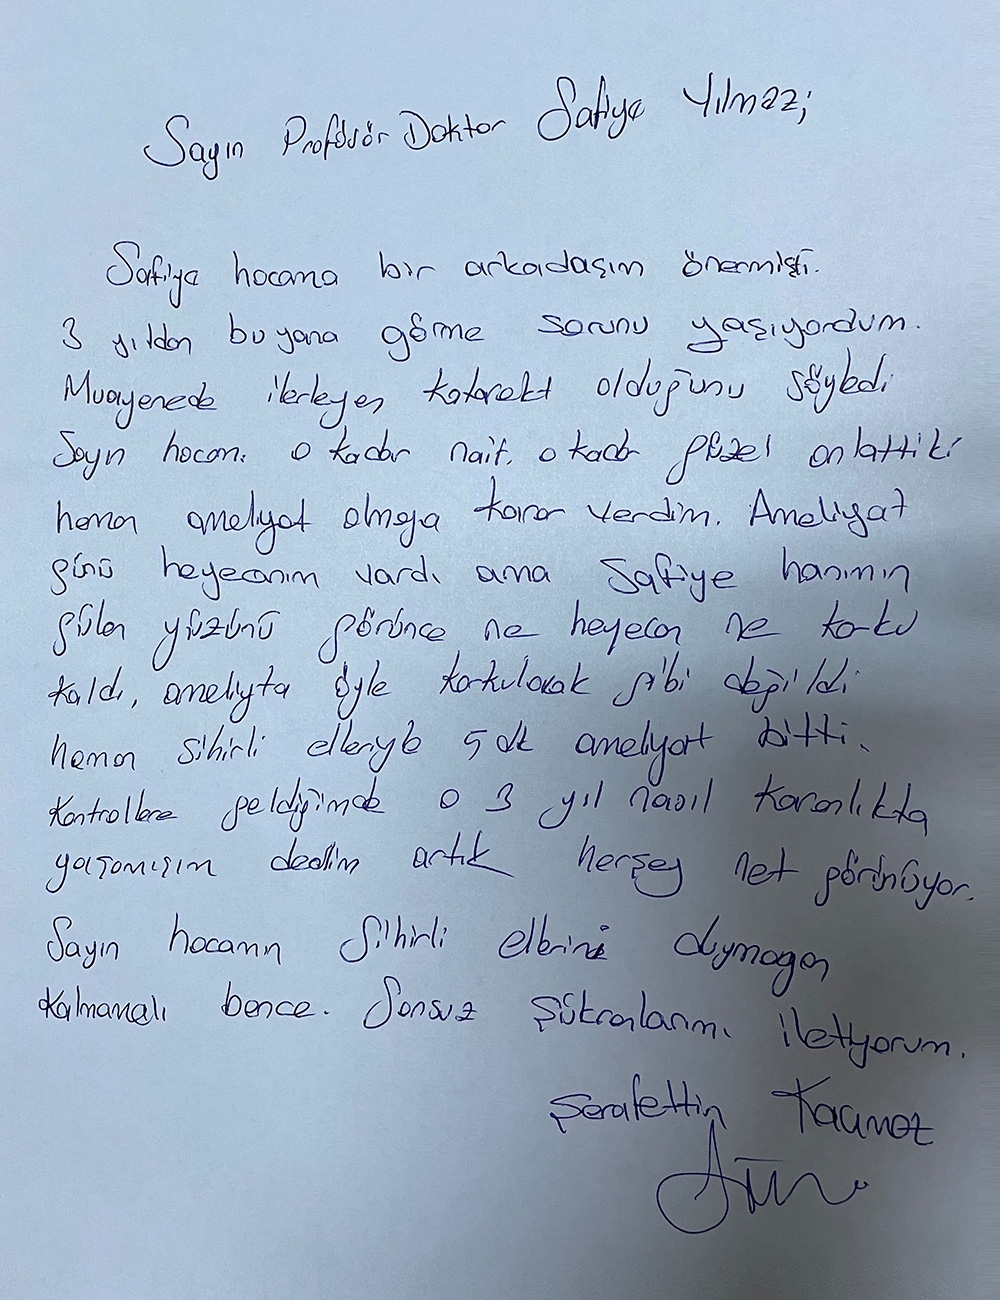 Sayın Profösör Doktor Safiye Yılmaz;
Safiye hocama bir arkadaşım önermişti.
3 yıldan bu yana görme sorunu yaşıyordum.
Muayenede ilerleyen katarakt olduğunu söyledi
Sayın hocam. o kadar naif, o kadar güzel anlattiki
hemen ameliyat olmaya karar verdim. Ameliyat
günü heyecanım vardı ama Safiye hanımın
gülen yüzünü görünce ne heyecan ne korku
kaldı, ameliyta öyle korkulacak gibi değildi
hemen sihirli elleriyle 5 dk ameliyat bitti.
Kontrollere geldiğimde o 3 yıl nasıl karanlıkta
yaşamışım dedim artık herşey net görünüyor.
Sayın hocamın Sihirli ellerini duymayan
kalmamalı bence. Sonsuz Şükranlarımı iletiyorum.
Şerafettin Kaçmaz